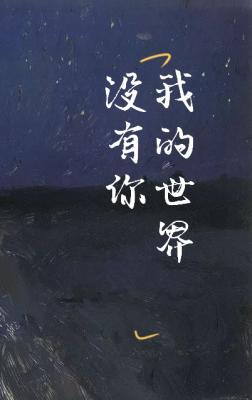 我的世界
没有你